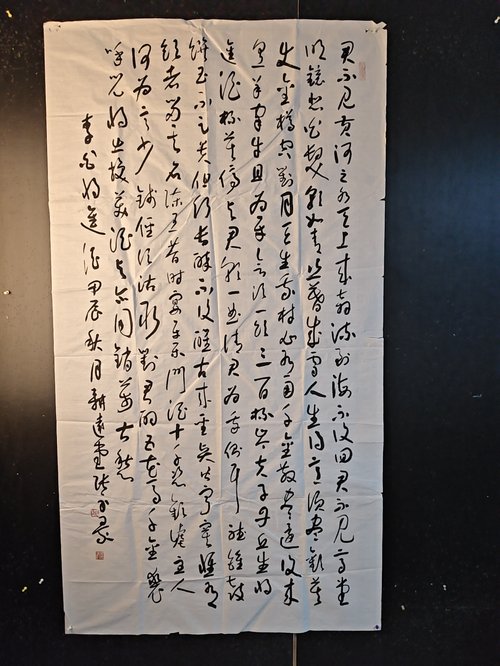 君不见黄河之水天上来奔流到海不复回君不见高堂
明镜悲白髮朝如青丝暮成雪人生得意须尽歡莫
使金樽空對月天生我材必有用千金散尽還復来
烹羊宰牛且为乐会须一饮三百杯岑夫子丹丘生将
進酒杯莫停与君歌一曲请君为我倾耳听钟鼓
馔玉不足贵但愿长醉不復醒古来圣贤皆寂寞惟有
饮者留其名陈王昔时宴平乐斗酒十千恣歡谑主人
何为言少钱径须沽取對君酌五花马千金裘
呼児将出换美酒与尔同销萬古愁
李白将進酒 甲辰秋月耕遠堂